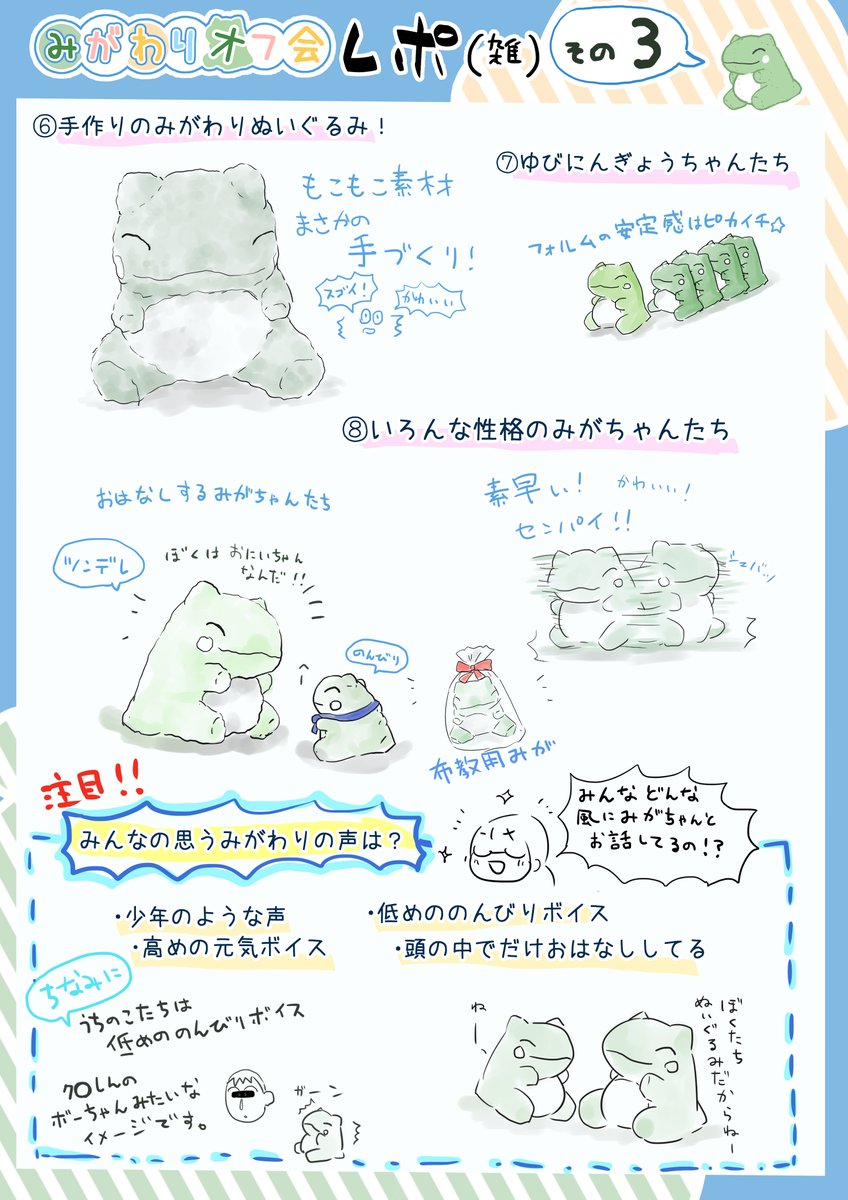 みがわりオフ会レポ(雑)
その3
⑥手作りのみがわりぬいぐるみ！
もこもこ素材
まさかの
手づくり！
スゴイ！
かわいい
⑦ゆびにんぎょうちゃんたち
フォルムの安定感はピカイチ☆
⑧いろんな性格のみがちゃんたち
おはなしするみがちゃんたち
ツンデレ
ぼくは おにいちゃん
なんだ！！
のんびり
素早い！
かわいい！
センパイ！！
布教用みが
注目！！
みんなの思うみがわりの声は？
みんな どんな
風にみがちゃんと
お話してるの！？
・少年のような声
・低めののんびりボイス
・高めの元気ボイス
・頭の中でだけおはなししてる
ちなみに
うちのこたちは
低めののんびりボイス
ク〇しんの
ボーちゃんみたいな
イメージです。
ガーン
ねー
ぼくたち
ぬいぐるみだからねー